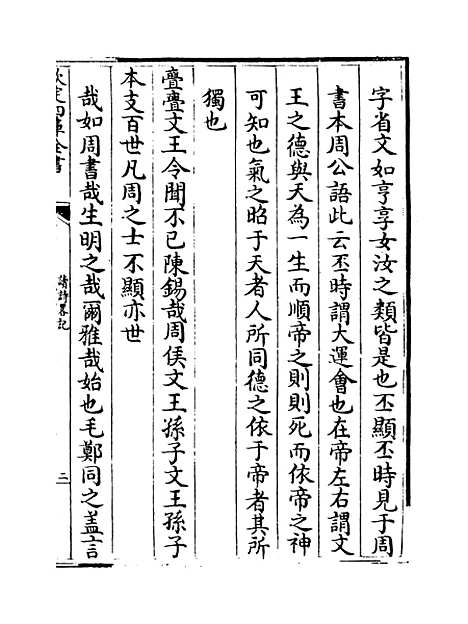 字省文如亨享女汝之類皆是也丕顯丕時見于周
書本周公語此云丕時謂大運會也在帝左右謂文
王之德與天為一生而順帝之則則死而依帝之神
可知也氣之昭于天者人所同德之依于帝者其所
獨也
亹亹文王令聞不已陳錫哉周侯文王孫子文王孫子
本支百世凡周之士不顯亦世
哉如周書哉生明之哉爾雅哉始也毛鄭同之蓋言
欽定四庫全書
讀詩畧記
三